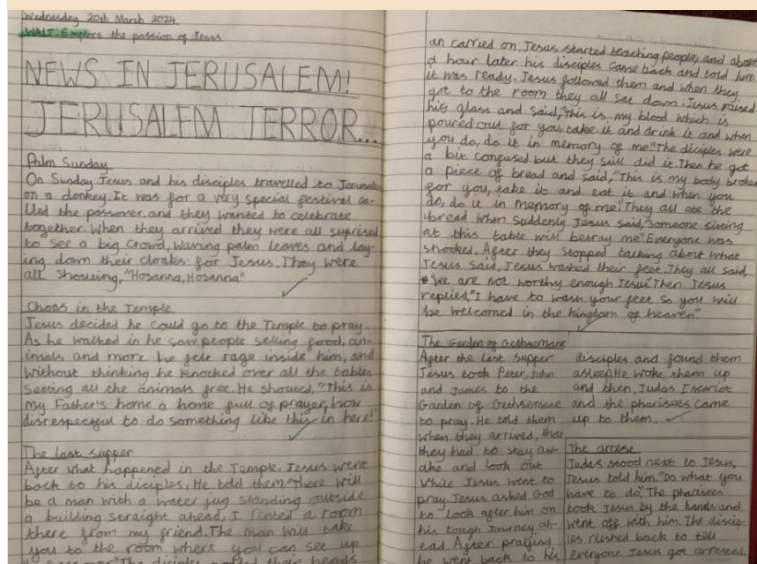 Wednesday 20th March 2024
WALT: Explore the passion of Jesus
NEWS IN JERUSALEM!
JERUSALEM TERROR...
Palm Sunday
On Sunday Jesus and his disciples travelled to Jerusale
on a donkey. It was for a very special festival ca-
lled the passover, and they wanted to celebrate
together. When they arrived they were all suprised
to see a big crowd, waving palm leaves and lay-
ing down their cloaks for Jesus. They were
all shouting, "Hosanna, Hosanna"
Choas in the Temple
Jesus decided he could go to the Temple to pray.
As he walked in he saw people selling food, an-
imals and more he felt rage inside him, and
without thinking he knocked over all the tables
setting all the animals free. He shouted, "This is
my Father's home a home full of prayer, how
disrespectful to do something like this in here!"
The last supper
After what happened in the Temple, Jesus went
back to his diciples. He told them, "There will
be a man with a water jug standing outside
a building straight ahead. I rented a room
there from my friend. The man will take
you to the room where you can set up
their heads
an carried on, Jesus started teaching people, and about
a hour later his disciples came back and told him
it was ready. Jesus followed them and when they
got to the room they all sat down. Jesus raised
his glass and said, "This is my blood which is
poured out for you, take it and drink it and when
you do, do it in memory of me." The diciples were
a bit confused but they still did it. Then he got
a piece of bread and said, "This is my body broken
for you, take it and eat it and when you
do, do it in memory of me." They all ate the
bread when suddenly Jesus said, "someone sitting
at this table will betray me" Everyone was
shocked. After they stopped talking about what
Jesus said, Jesus washed their feet. They all said,
"We are not worthy enough Jesus" Then Jesus
replied, "I have to wash your feet so you will
be welcomed in the kingdom of heaven."
The Garden of Gethsemane
After the last supper
Jesus took Peter, John
and James to the
Garden of Gethsemane
to pray. He told them
when they arrived, that
they had to stay aw-
ake and look out
while Jesus went to
pray. Jesus asked God
to look after him on
his tough journey ah-
ead. After praying
he went back to his
disciples and found them
asleep. He woke them up
and then, Judas Iscariot
and the pharisees came
up to them.
The arrest
Judas stood next to Jesus,
Jesus told him, "Do what you
have to do." The pharisees
took Jesus by the hands and
went off with him. The discip-
les rushed back to tell
everyone Jesus got arrested